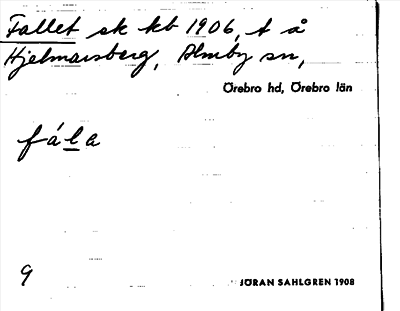 Fallet sk kb 1906, t å
Hjelmarsberg, Almby sn,
Örebro hd, Örebro län
fála
9
JÖRAN SAHLGREN 1908